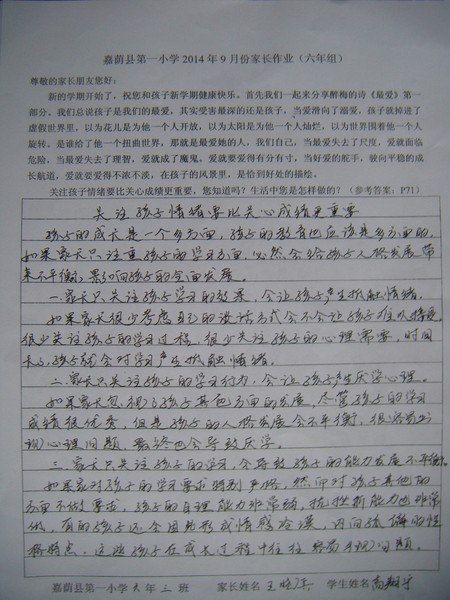 嘉荫县第一小学2014年9月份家长作业（六年组）
尊敬的家长朋友您好：
新的学期开始了，祝您和孩子新学期健康快乐。首先我们一起来分享醉梅的诗《最爱》第一
部分。我们总说孩子是我们的最爱，其实受害最深的还是孩子，当爱滑向了溺爱，孩子就掉进了
虚假世界里，以为花儿是为他一个人开放，以为太阳是为他一个人灿烂，以为世界围着他一个人
旋转，是谁给了他一个扭曲世界，那就是最爱她的人，我们自己，当最爱失去了尺度，爱就面临
危险，当最爱失去了理智，爱就成了魔鬼，爱就要爱得有分有寸，当好爱的舵手，驶向平稳的成
长航道，爱就要爱得不浓不淡，在孩子的风景里，是恰到好处的描绘。
关注孩子情绪要比关心成绩更重要，您知道吗？生活中您是怎样做的？（参考答案：P71）
关注孩子情绪要比关心成绩更重要
孩子的成长是一个多方面，孩子的教育也应该是多方面的，
如果家长只注重孩子的学习方面，必然会给孩子人格发展带
来不平衡，影响孩子的全面发展。
一.家长只关注孩子学习的效果，会让孩子产生抵触情绪。
如果家长很少考虑自己的说话方式会不会让孩子难以接受，
很少关注孩子的学习过程，很少关注孩子的心理需要，时间
长了，孩子就会对学习产生抵触情绪。
二.家长只关注孩子的学习行为，会让孩子产生厌学心理。
如果家长忽视了孩子其他方面的发展，尽管孩子的学习
成绩很优秀，但是孩子的人格发展会不平衡，很容易出
现心理问题，最终也会导致厌学。
三.家长只关注孩子的学习，会导致孩子的能力发展不平衡。
如果家长对孩子的学习要求特别严格，然而对孩子其他的
方面不做要求，孩子的自理能力非常弱，抗挫折能力也非常
低，有的孩子还会因此形成情感冷漠，内向孤僻的性
格特点，这些孩子在成长过程中往往容易出现问题。
嘉荫县第一小学六年三班 家长姓名王晓其 学生姓名高翔宇